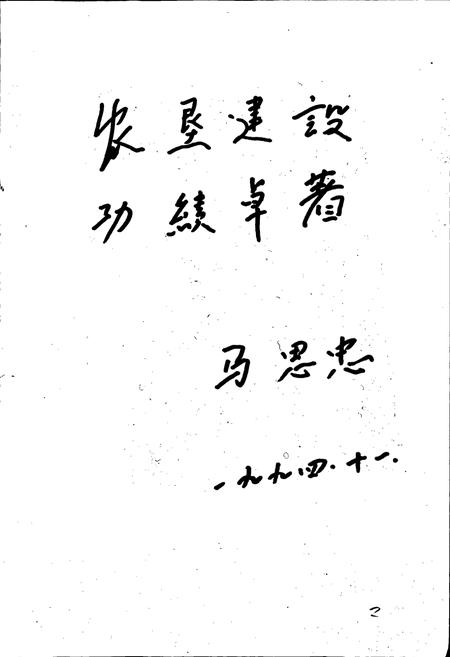 农垦建設
功績卓著
马思忠
一九九四·十一.
2